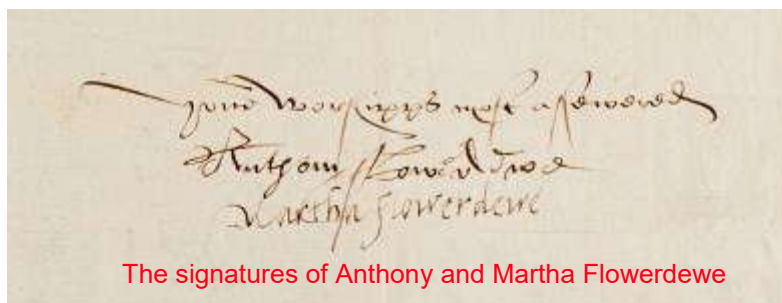 Your worshipps most assewered
Anthony Flowerdewe
Martha Flowerdewe
The signatures of Anthony and Martha Flowerdewe